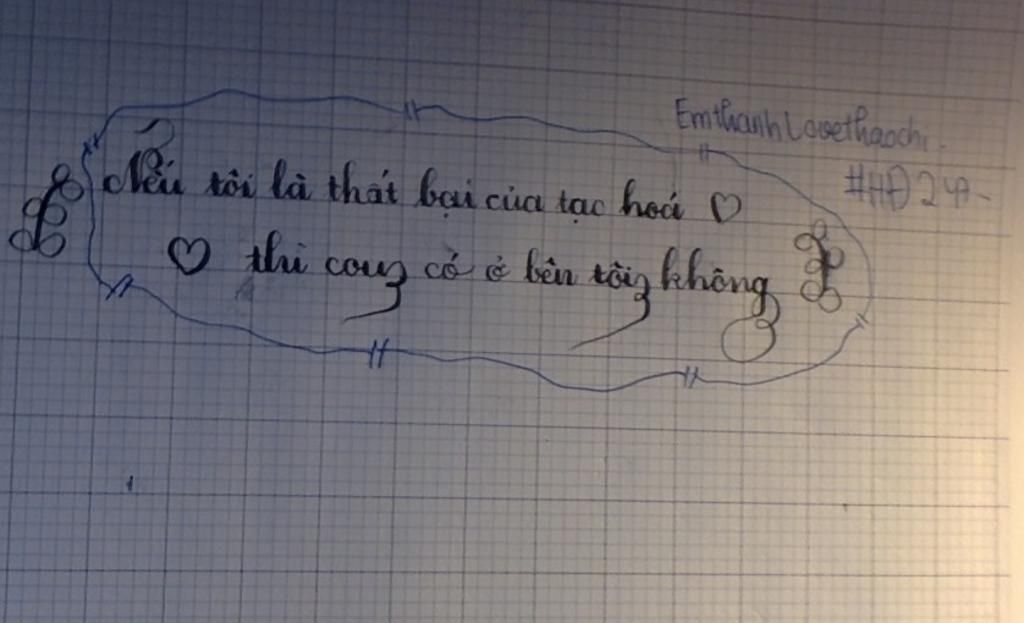 EmthanhLovethaochi.
#HĐ247-
Nếu tôi là thất bại của tạc hoá ♡
♡ thì couz có ở bên tôiz không